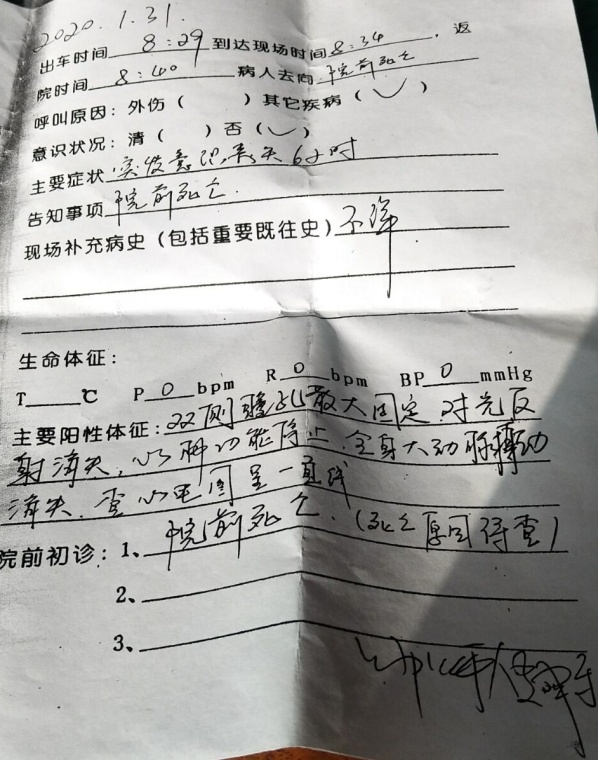 2020.1.31.
出车时间 8:29 到达现场时间 8:34 . 返
院时间 8:40 病人去向 院前死亡
呼叫原因: 外伤 ( ) 其它疾病 ( ✓ )
意识状况: 清 ( ) 否 ( ✓ )
主要症状 突发意识丧失6小时
告知事项 院前死亡.
现场补充病史 (包括重要既往史) 不详
生命体征:
T ℃ P 0 bpm R 0 bpm BP 0 mmHg
主要阳性体征: 双侧瞳孔散大固定.对光反
射消失,心肺功能停止.全身大动脉搏动
消失.查心电图呈一直线
院前初诊: 1、院前死亡.(死亡原因待查)
2、
3、